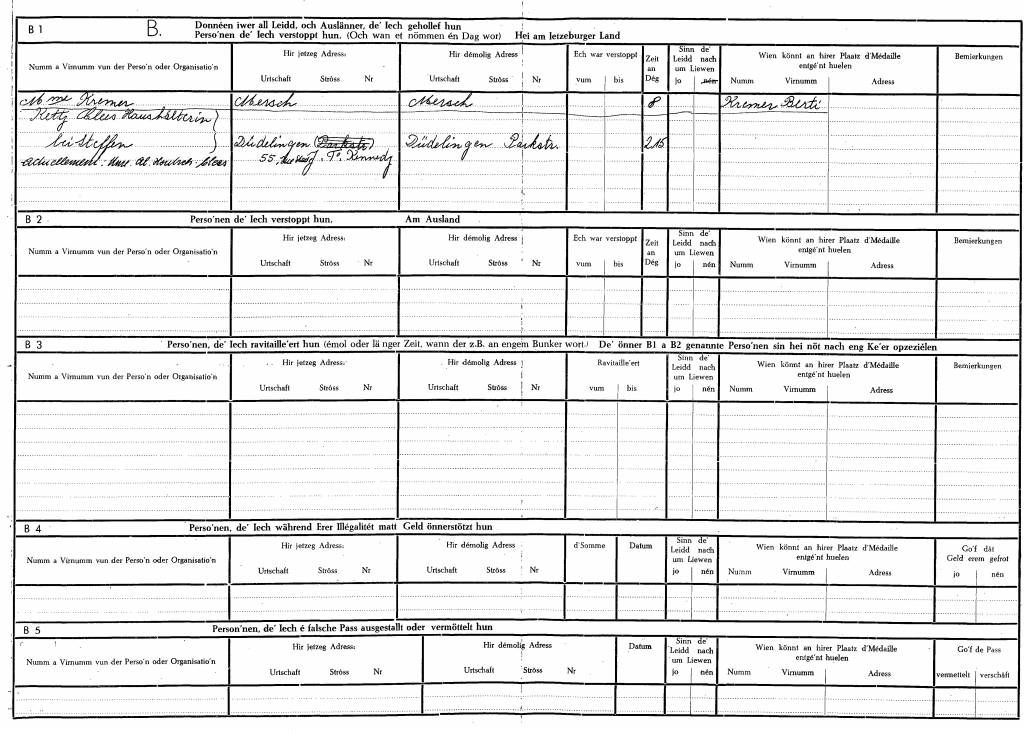 B 1 B. Donnéen iwer all Leidd, och Auslänner, de' Iech gehollef hun
Perso'nen de' Iech verstoppt hun. (Och wan et nömmen én Dag wor) Hei am Letzeburger Land
Numm a Virnumm vun der Perso'n oder Organisatio'n
Hir jetzeg Adress:
Urtschaft Ströss Nr
Hir démolig Adress
Urtschaft Ströss Nr
Ech war verstoppt
vum bis
Zeit
an
Dég
Sinn de'
Leidd nach
um Liewen
jo nén
Wien könnt an hirer Plaatz d'Médaille
entgé'nt huelen
Numm Virnumm Adress
Bemierkungen
Mme Kremer Mersch Mersch 8 Kremer Berti
Ketty Clees Haushälterin
bei Steffen Düdelingen (Parkstr.) Düdelingen Parkstr. 215
actuellement: 55, J. F. Kennedy
B 2 Perso'nen de' Iech verstoppt hun. Am Ausland
Numm a Virnumm vun der Perso'n oder Organisatio'n
Hir jetzeg Adress:
Urtschaft Ströss Nr
Hir démolig Adress
Urtschaft Ströss Nr
Ech war verstoppt
vum bis
Zeit
an
Dég
Sinn de'
Leidd nach
um Liewen
jo nén
Wien könnt an hirer Plaatz d'Médaille
entgé'nt huelen
Numm Virnumm Adress
Bemierkungen
B 3 Perso'nen, de' Iech ravitaille'ert hun (émol oder lä nger Zeit, wann der z.B. an engem Bunker wort.) De' önner B1 a B2 genannte Perso'nen sin hei nöt nach eng Ke'er opzeziélen
Numm a Virnumm vun der Perso'n oder Organisatio'n
Hir jetzeg Adress:
Urtschaft Ströss Nr
Hir démolig Adress
Urtschaft Ströss Nr
Ravitaille'ert
vum bis
Sinn de'
Leidd nach
um Liewen
jo nén
Wien könnt an hirer Plaatz d'Médaille
entgé'nt huelen
Numm Virnumm Adress
Bemierkungen
B 4 Perso'nen, de' Iech während Erer Illégalitét matt Geld önnerstötzt hun
Numm a Virnumm vun der Perso'n oder Organisatio'n
Hir jetzeg Adress:
Urtschaft Ströss Nr
Hir démolig Adress
Urtschaft Ströss Nr
d'Somme
Datum
Sinn de'
Leidd nach
um Liewen
jo nén
Wien könnt an hirer Plaatz d'Médaille
entgé'nt huelen
Numm Virnumm Adress
Go'f dät
Geld erem gefrot
jo nén
B 5 Person'nen, de' Iech é falsche Pass ausgestallt oder vermöttelt hun
Numm a Virnumm vun der Perso'n oder Organisatio'n
Hir jetzeg Adress:
Urtschaft Ströss Nr
Hir démolig Adress
Urtschaft Ströss Nr
Datum
Sinn de'
Leidd nach
um Liewen
jo nén
Wien könnt an hirer Plaatz d'Médaille
entgé'nt huelen
Numm Virnumm Adress
Go'f de Pass
vermettelt verschäft